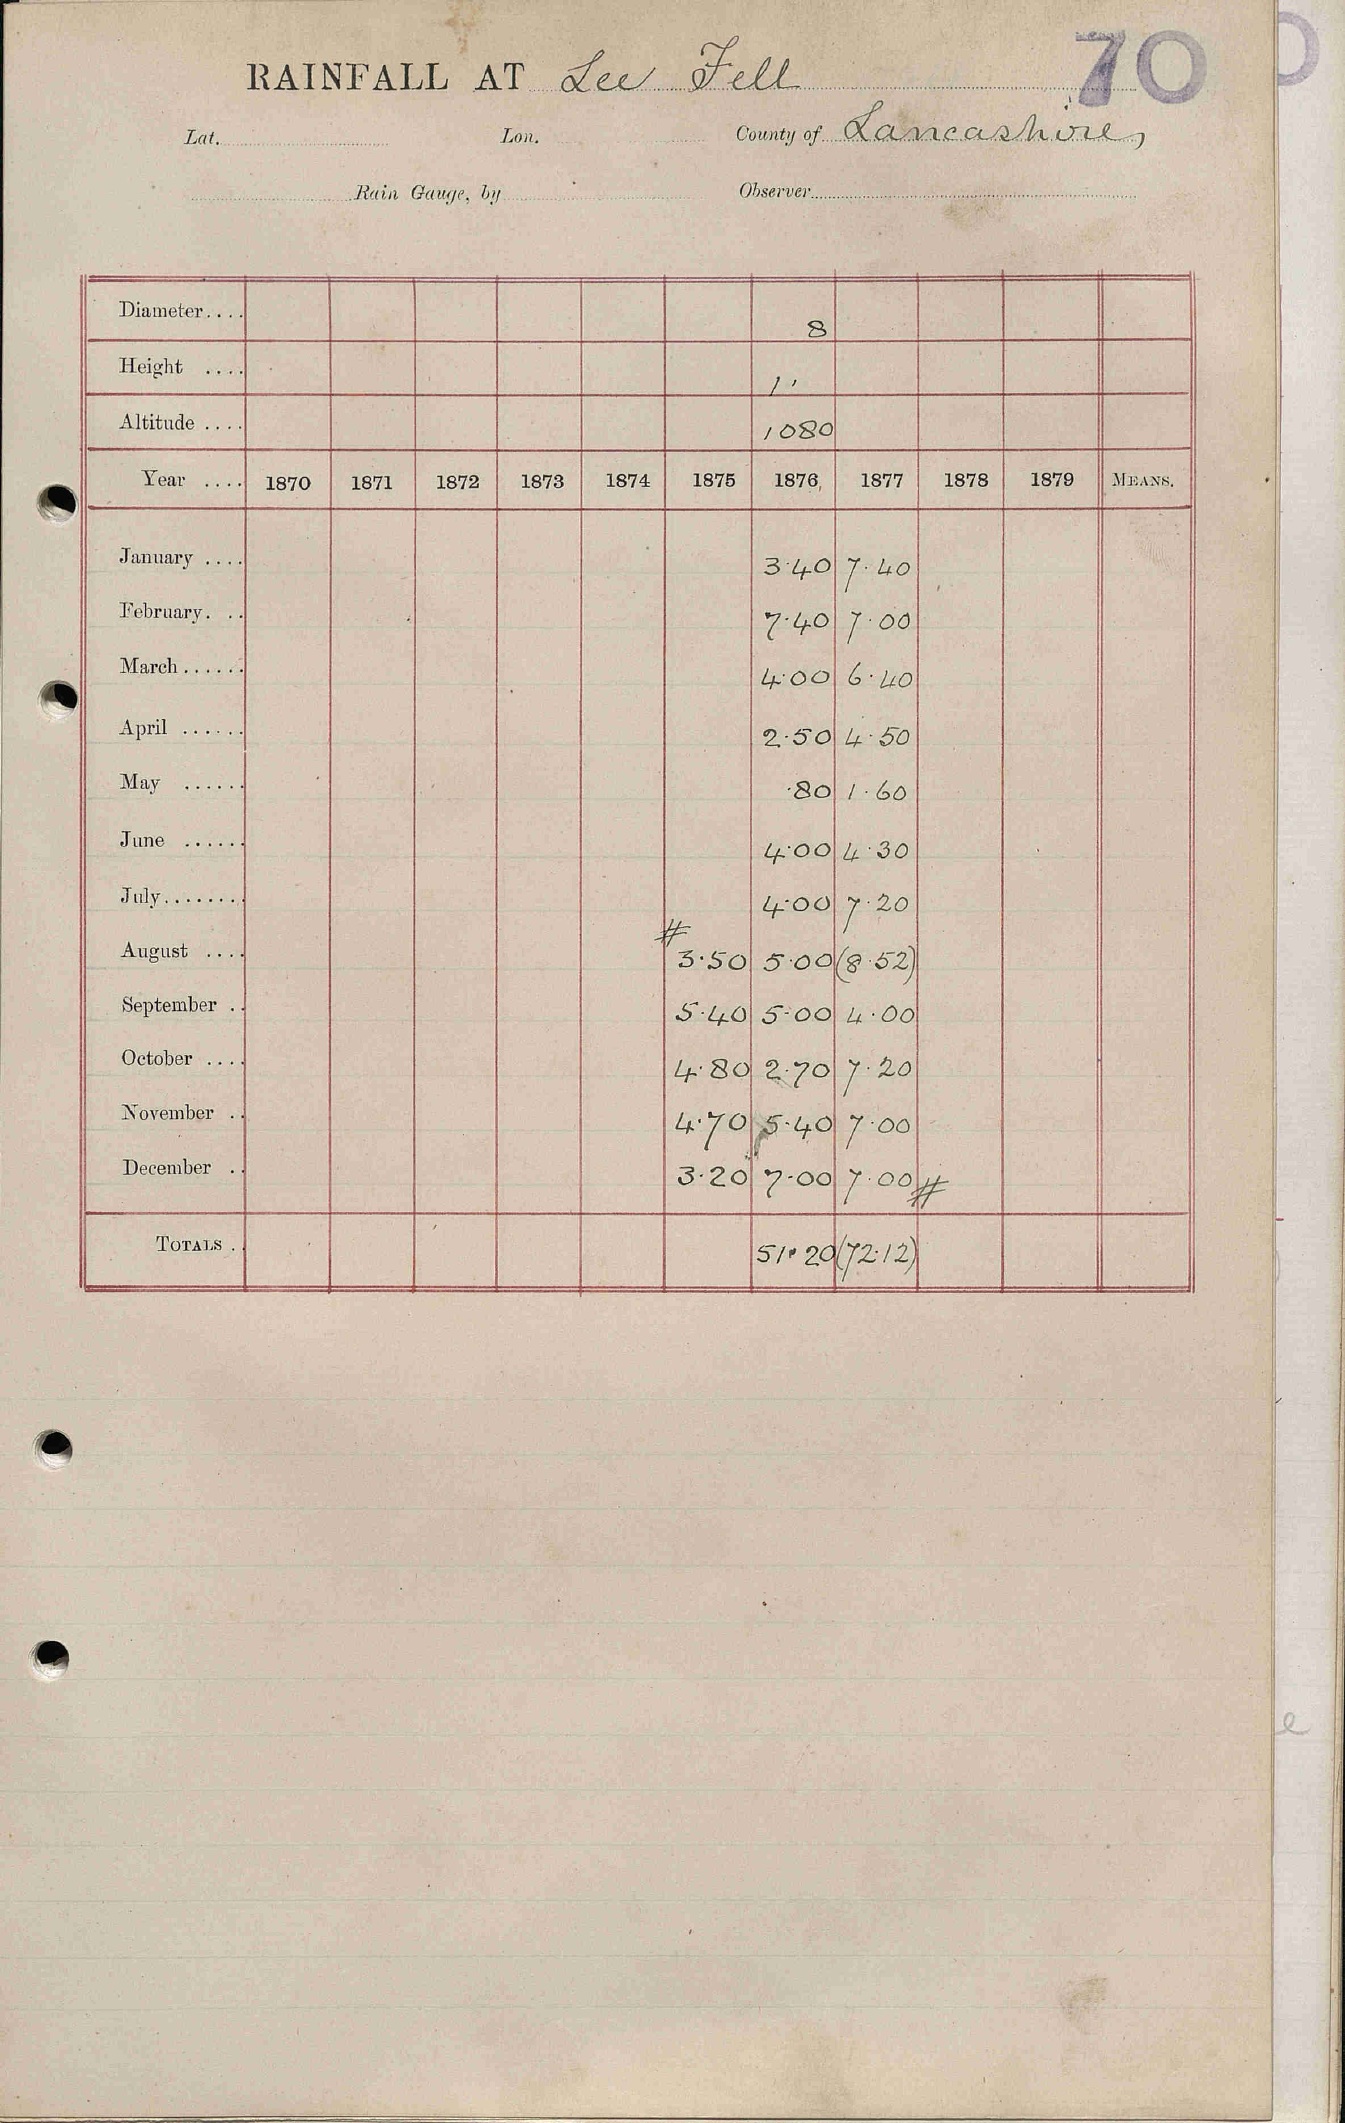 70
RAINFALL AT Lee Fell
Lat. Lon. County of Lancashire,
Rain Gauge, by Observer
Diameter.... 8
Height .... 1'
Altitude .... 1080
Year .... 1870 1871 1872 1873 1874 1875 1876 1877 1878 1879 MEANS.
January .... 3.40 7.40
February. .. 7.40 7.00
March...... 4.00 6.40
April ...... 2.50 4.50
May ...... .80 1.60
June ...... 4.00 4.30
July........ 4.00 7.20
August .... # 3.50 5.00 (8.52)
September .. 5.40 5.00 4.00
October .... 4.80 2.70 7.20
November .. 4.70 5.40 7.00
December .. 3.20 7.00 7.00 #
TOTALS . 51.20 (72.12)